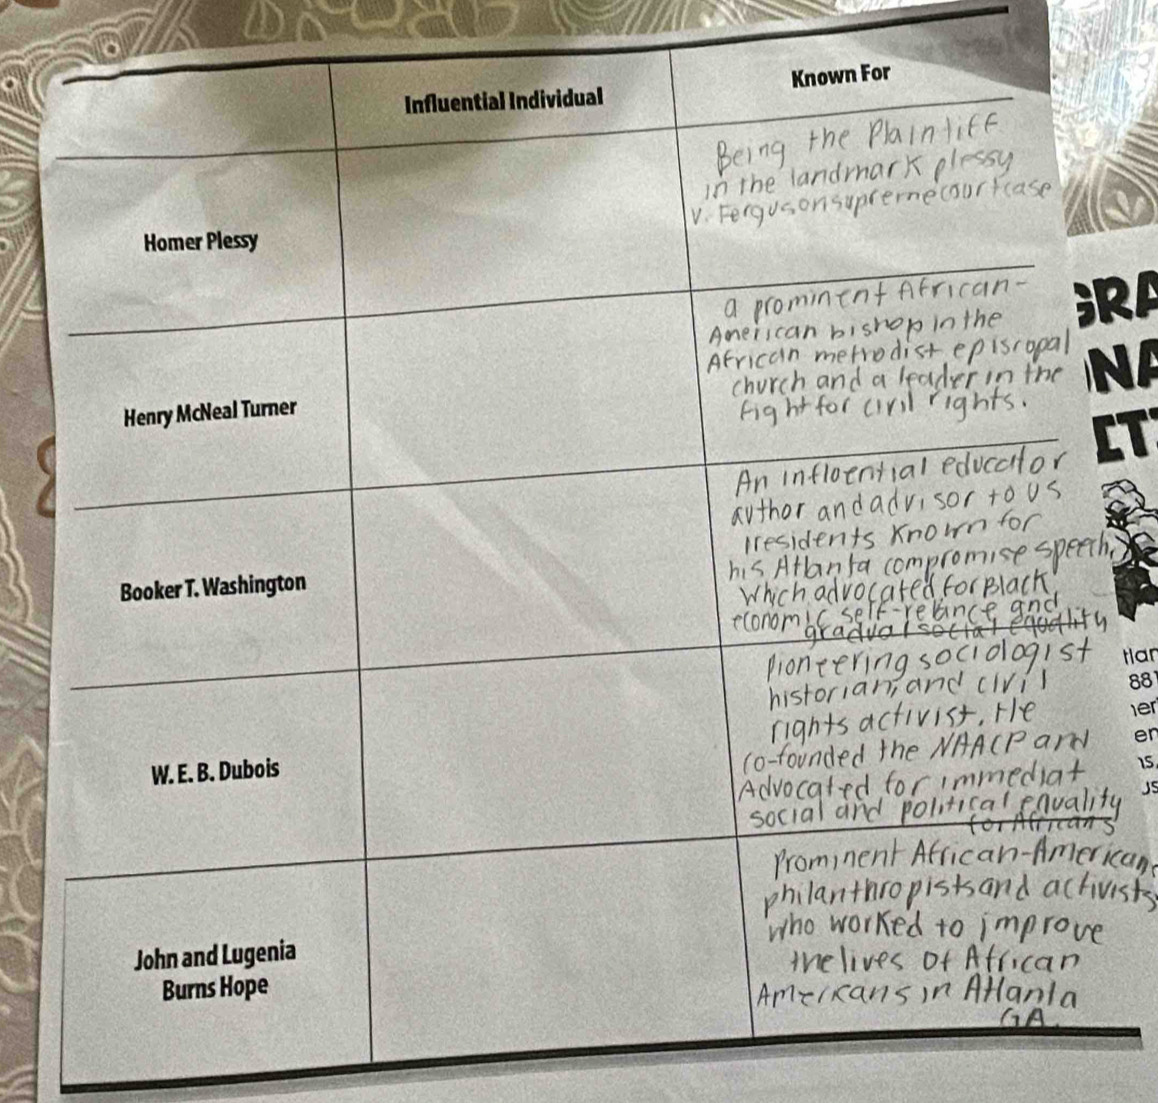 Influential Individual
Known For
Homer Plessy
Being the Plaintiff
in the landmark plessy
v. Ferguson supreme court case
Henry McNeal Turner
a prominent African-
American bishop in the
African methodist episcopal
church and a leader in the
fight for civil rights.
Booker T. Washington
An influential educator
author and advisor to US
presidents known for
his Atlanta compromise speech,
which advocated for Black
economic self-reliance and
gradual social equality
W. E. B. Dubois
pioneering sociologist
historian, and civil
rights activist. He
co-founded the NAACP and
Advocated for immediat
social and political equality
for Africans
John and Lugenia
Burns Hope
Prominent African-American
philanthropists and activists
who worked to improve
the lives of African
Americans in Atlanta
GA.
GRA
NA
IT
88
er
en